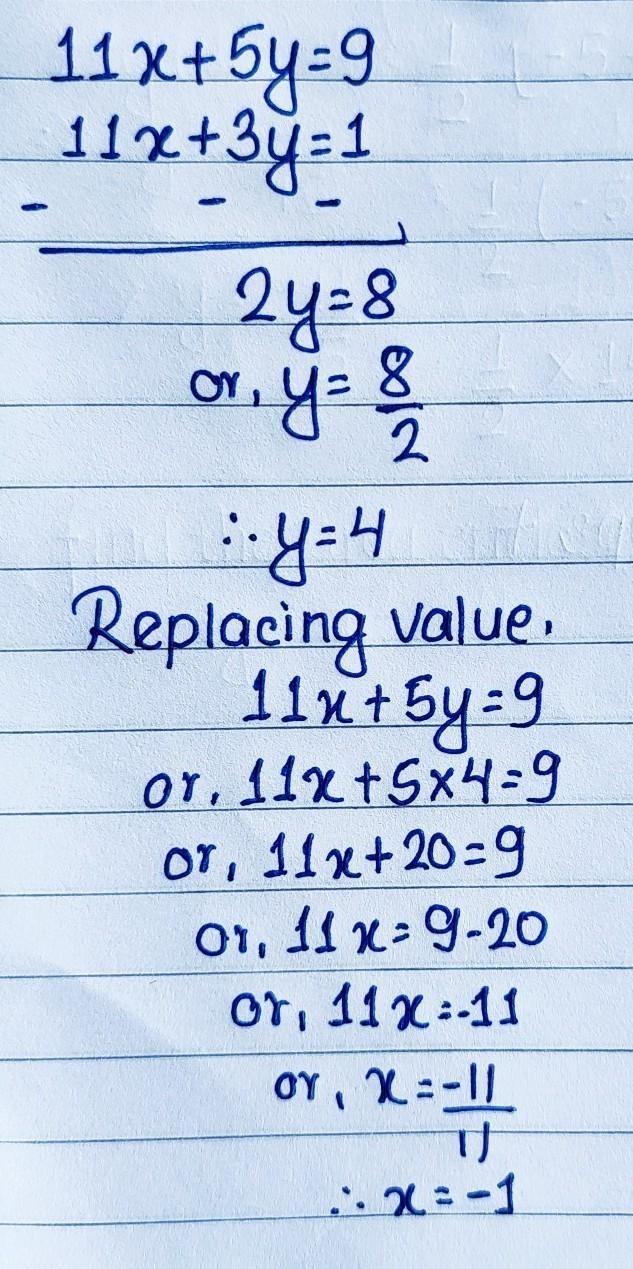 11x+5y=9
11x+3y=1
- - -
2y=8
or, y= 8/2
∴ y=4
Replacing value.
11x+5y=9
or, 11x+5×4=9
or, 11x+20=9
or, 11x=9-20
or, 11x=-11
or, x=-11/11
∴ x=-1